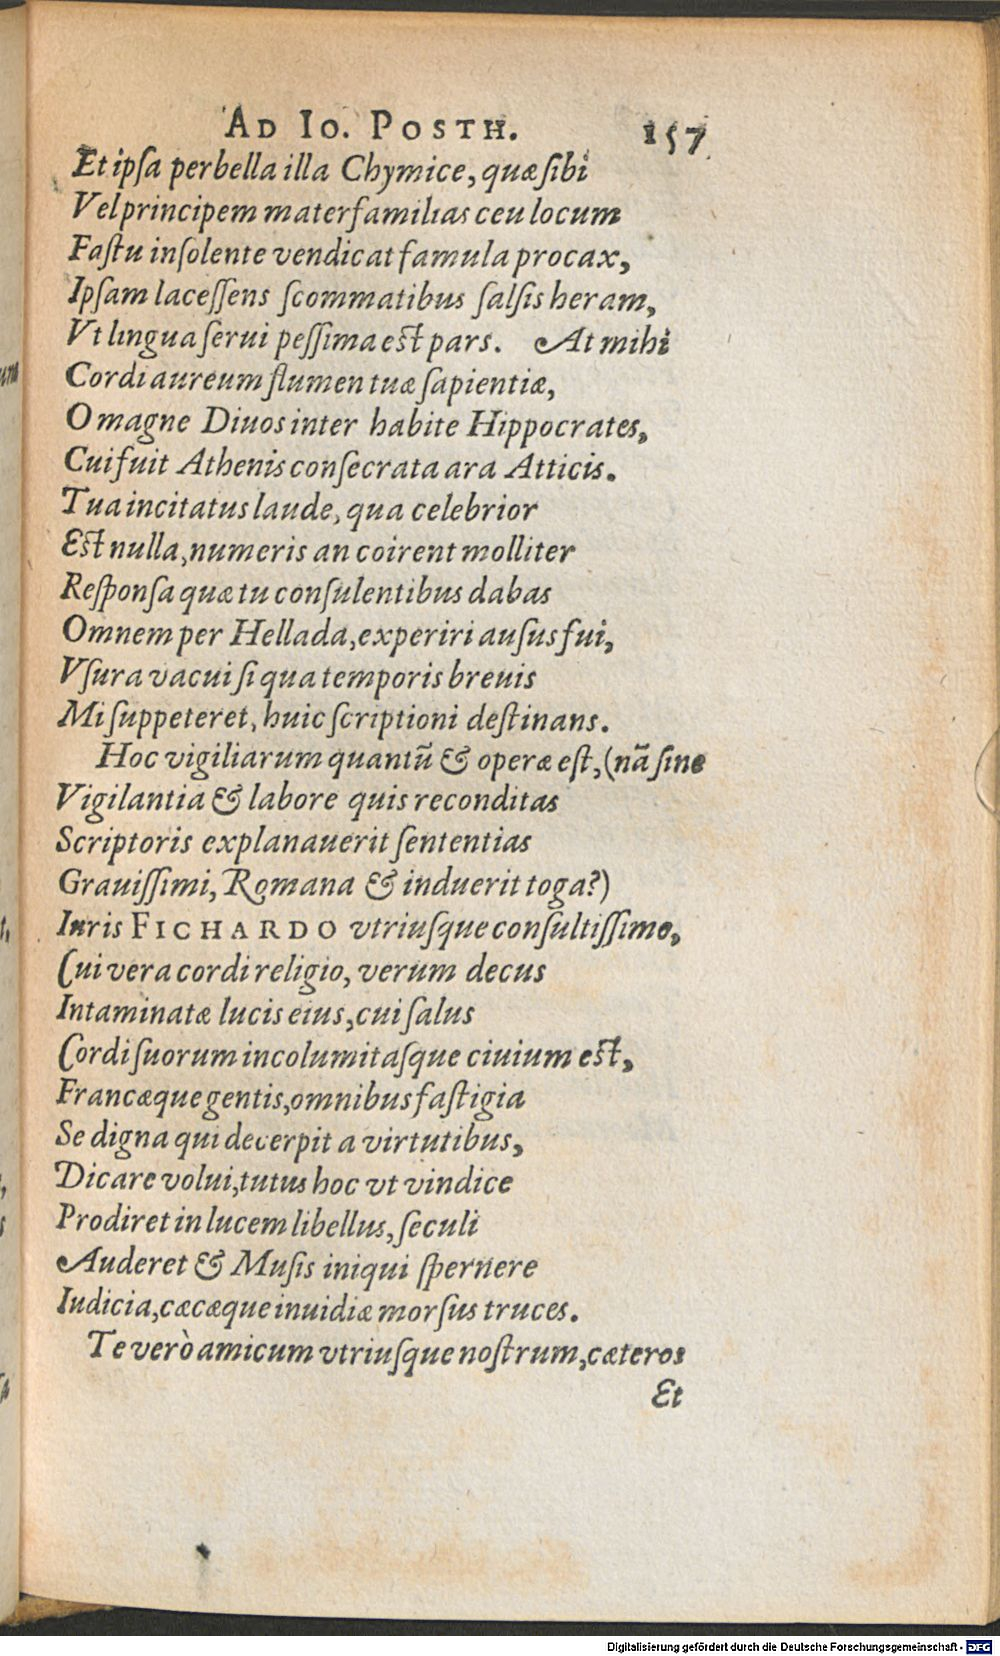 AD IO. POSTH. 157
Et ipſa perbella illa Chymice, quæ ſibi
Vel principem materfamilias ceu locum
Faſtu inſolente vendicat famula procax,
Ipſam laceſſens ſcommatibus ſalſis heram,
Vt lingua ſerui peſſima eſt pars. At mihi
Cordi aureum flumen tuæ ſapientiæ,
O magne Diuos inter habite Hippocrates,
Cui fuit Athenis conſecrata ara Atticis.
Tua incitatus laude, qua celebrior
Eſt nulla, numeris an coirent molliter
Reſponſa quæ tu conſulentibus dabas
Omnem per Hellada, experiri auſus fui,
Vſura vacui ſi qua temporis breuis
Mi ſuppeteret, huic ſcriptioni deſtinans.
Hoc vigiliarum quantū & operæ eſt, (nā ſine
Vigilantia & labore quis reconditas
Scriptoris explanauerit ſententias
Grauiſſimi, Romana & induerit toga?)
Iuris FICHARDO vtriuſque conſultiſſimo,
Cui vera cordi religio, verum decus
Intaminatæ lucis eius, cui ſalus
Cordi ſuorum incolumitaſque ciuium eſt,
Francæque gentis, omnibus faſtigia
Se digna qui decerpit a virtutibus,
Dicare volui, tutus hoc vt vindice
Prodiret in lucem libellus, ſeculi
Auderet & Muſis iniqui ſpernere
Iudicia, cæcæque inuidiæ morſus truces.
Te verò amicum vtriuſque noſtrum, cæteros
Et
Digitalisierung gefördert durch die Deutsche Forschungsgemeinschaft - DFG